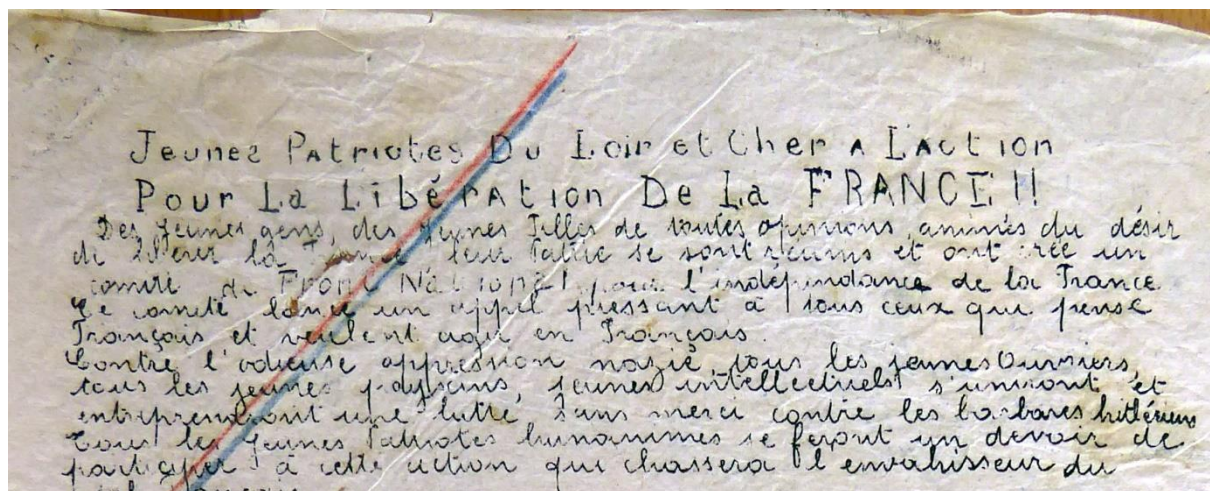 Jeunes Patriotes Du Loir et Cher A L'Action
Pour La Libération De La FRANCE!!
Des jeunes gens, des jeunes filles de toutes opinions, animés du désir
de libérer la France leur Patrie se sont réunis et ont créé un
comité de Front National pour l'indépendance de la France
Ce comité lance un appel pressant à tous ceux qui pense
Français et veulent agir en Français.
Contre l'odieuse oppression nazie, tous les jeunes Ouvriers,
tous les jeunes paysans, jeunes intellectuels s'uniront et
entreprendront une lutte sans merci contre les barbares hitlériens
Tous les jeunes Patriotes hunanimes se feront un devoir de
participer à cette action qui chassera l'envahisseur du